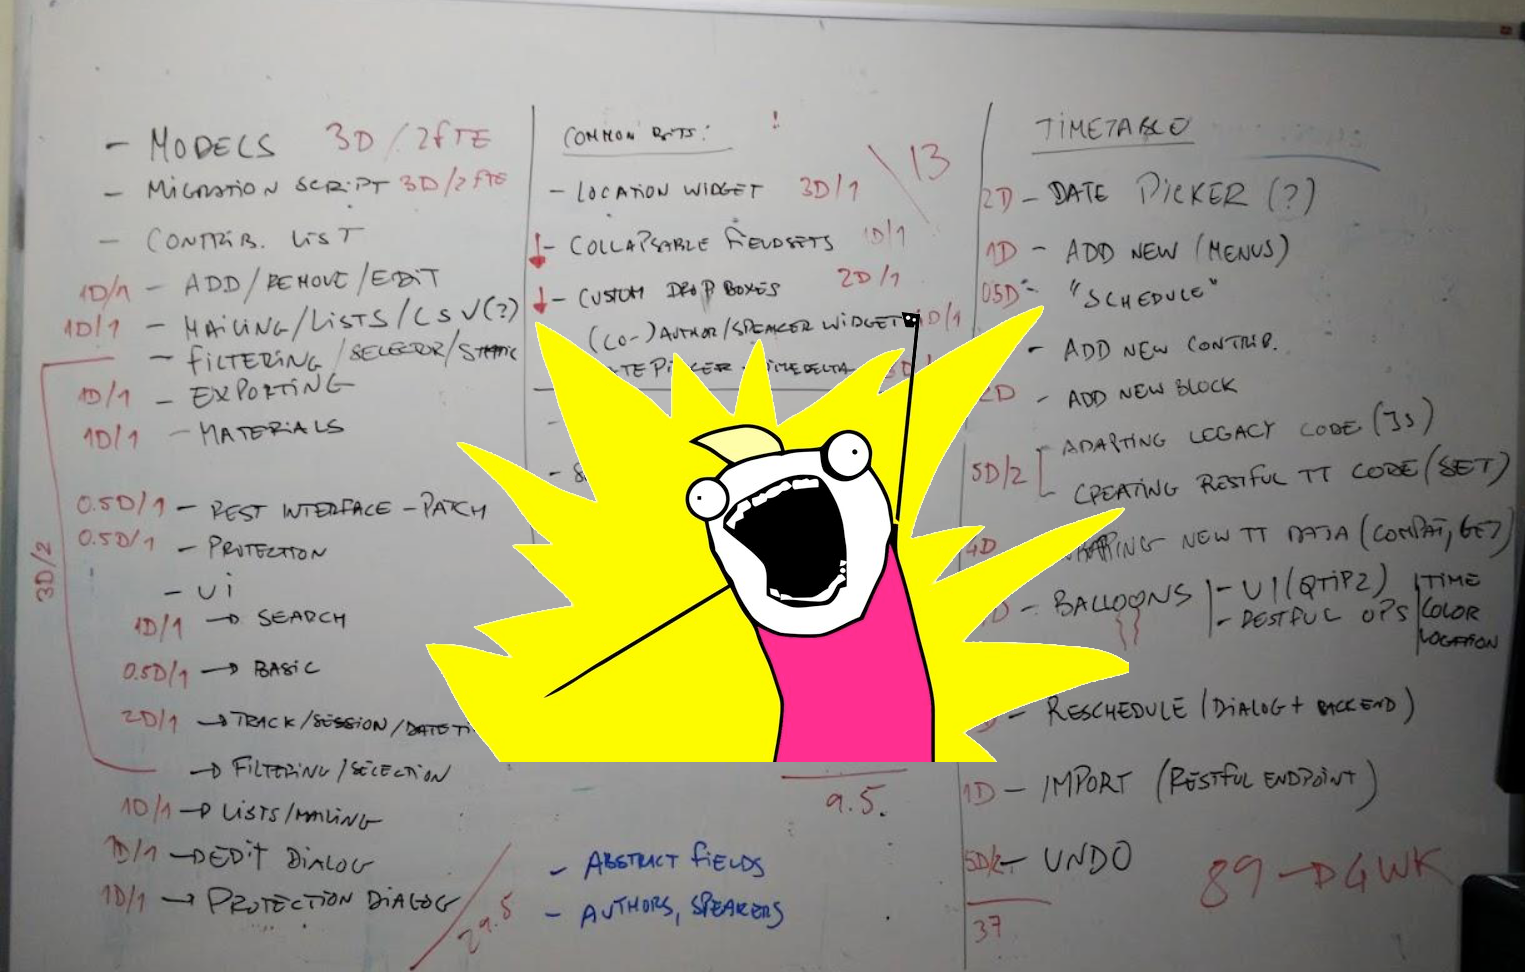 - MODELS 3D / 2FTE
- MIGRATION SCRIPT 3D/2 FTE
- CONTRIB. LIST
1D/1 - ADD/REMOVE/EDIT
1D/1 - MAILING/LISTS/CSV(?)
- FILTERING/SELECTOR/STATIC
1D/1 - EXPORTING
1D/1 - MATERIALS
0.5D/1 - REST INTERFACE - PATCH
0.5D/1 - PROTECTION
3D/2
- UI
1D/1 → SEARCH
0.5D/1 → BASIC
2D/1 → TRACK/SESSION/DATETI
→ FILTERING/SELECTION
1D/1 → LISTS/MAILING
1D/1 → EDIT DIALOG
1D/1 → PROTECTION DIALOG
29.5
COMMON BITS: !
13
- LOCATION WIDGET 3D/1
- COLLAPSABLE FIELDSETS 1D/1
- CUSTOM DROPBOXES 2D/1
(CO-)AUTHOR/SPEAKER WIDGET 1D/1
TE PICKER TIMEDELTA 3D
9.5.
- ABSTRACT FIELDS
- AUTHORS, SPEAKERS
TIMETABLE
2D - DATE PICKER (?)
1D - ADD NEW (MENUS)
0.5D - "SCHEDULE"
- ADD NEW CONTRIB.
2D - ADD NEW BLOCK
5D/2 ADAPTING LEGACY CODE (JS)
CREATING RESTFUL TT CODE (SET)
4D NEW TT DATA (COMPAT, GET)
D - BALLOONS - UI (QTIP2) TIME
- RESTFUL OPS COLOR
LOCATION
- RESCHEDULE (DIALOG + BACKEND)
1D - IMPORT (RESTFUL ENDPOINT)
5D/2 - UNDO
37
89 → 9WK